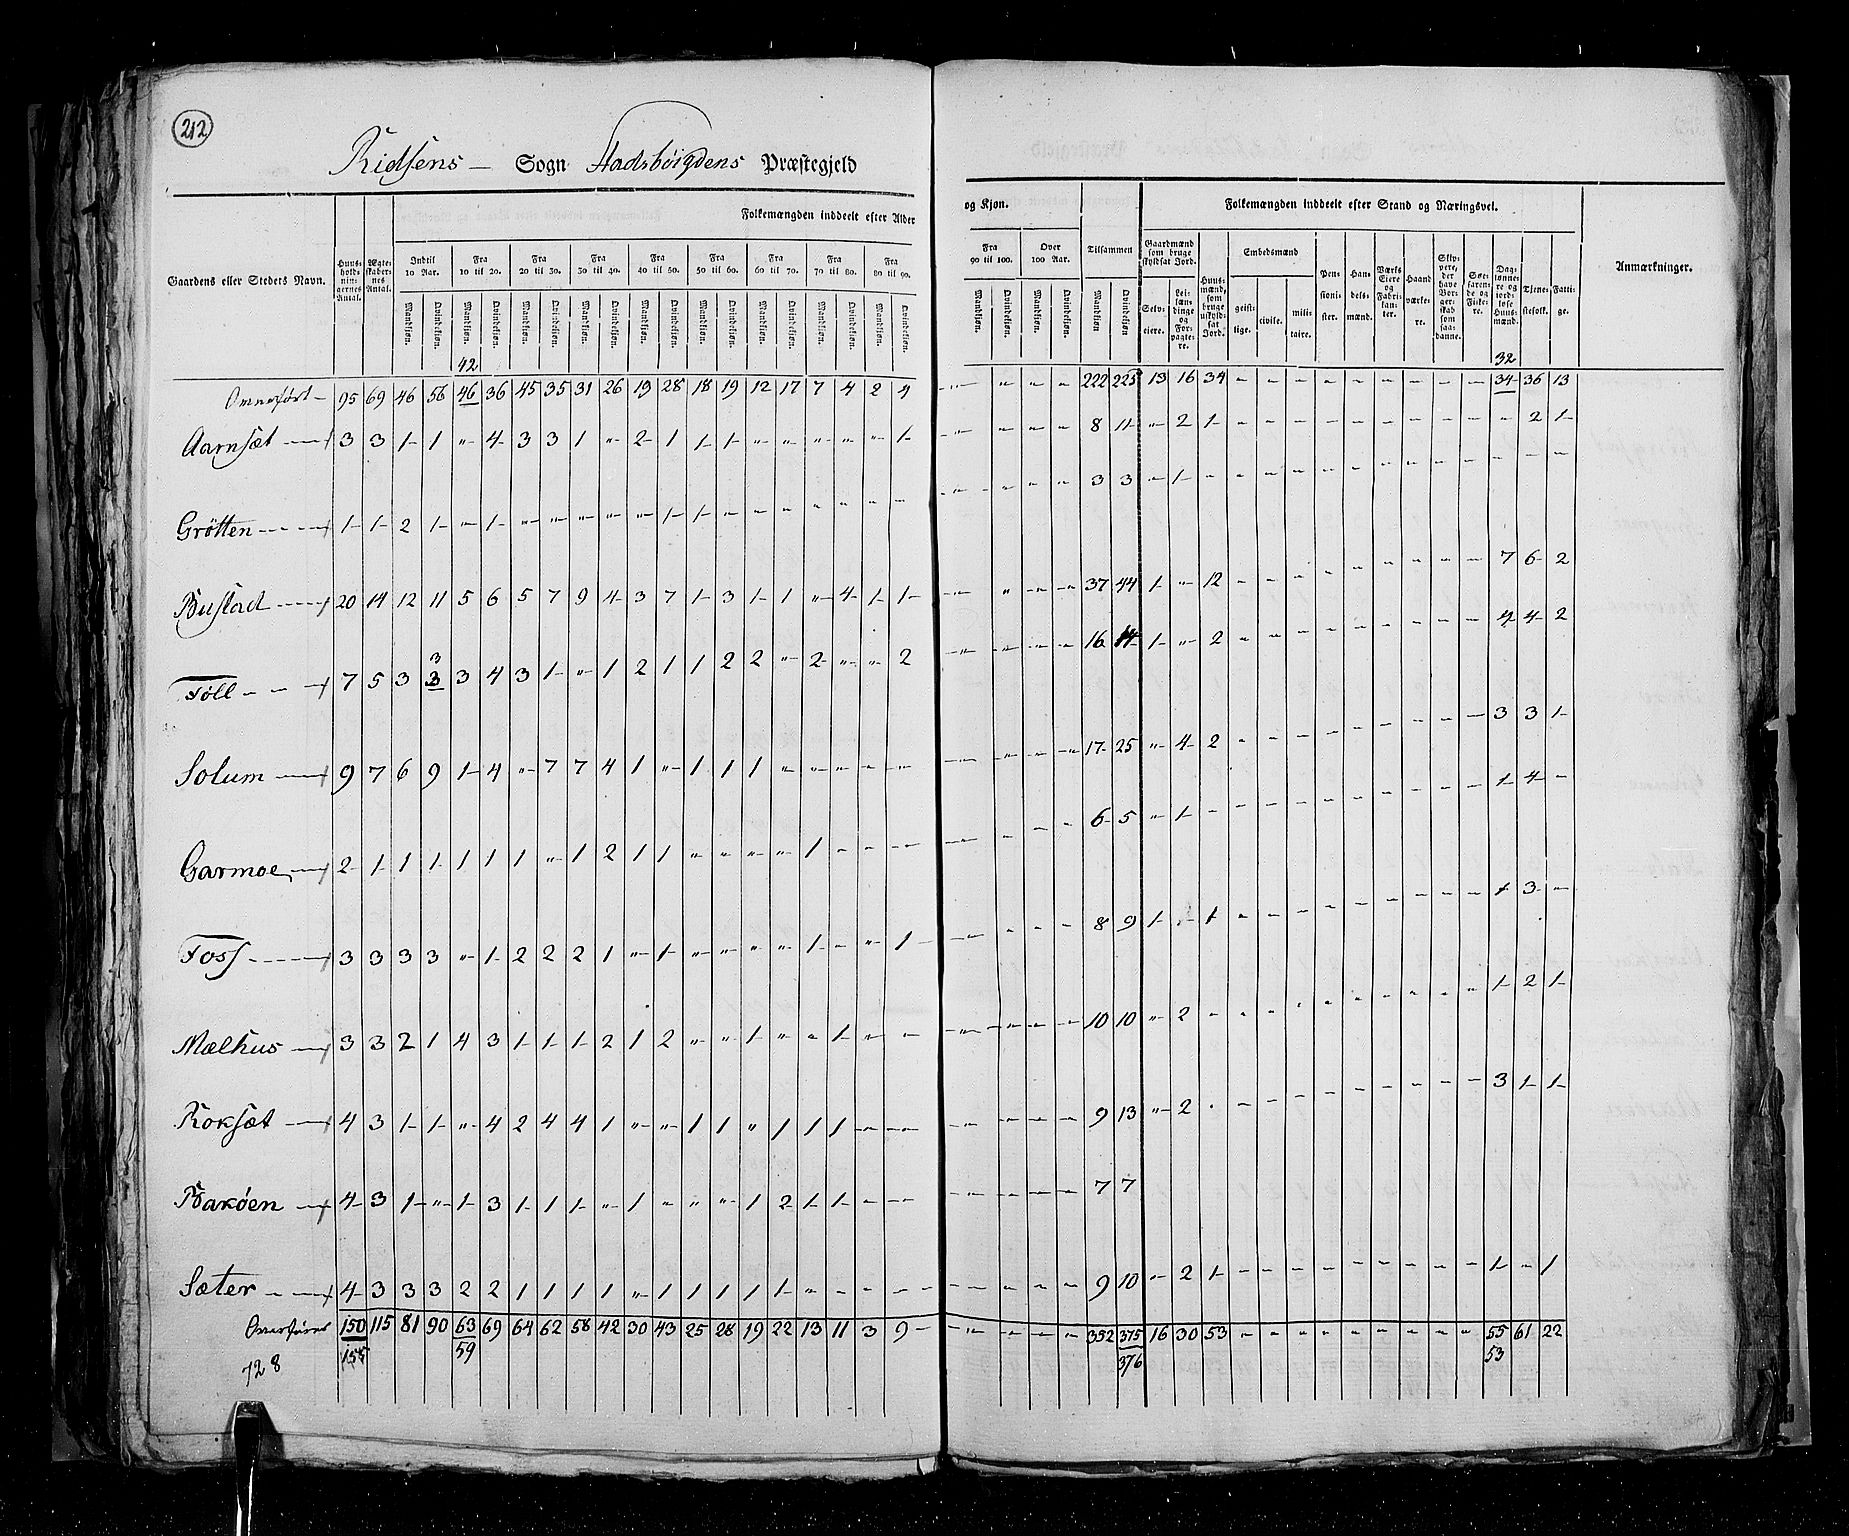 212
Ridsens — Sogn Stadsbøigdens Præstegjeld
Folkemængden inddeelt efter Alder og Kjøn.
Folkemængden inddeelt efter Stand og Næringsvei.
Gaardens eller Stedets Navn. Huus-holdnin-gernes Antal. Ægte-skaber-nes Antal. Indtil 10 Aar. Fra 10 til 20. Fra 20 til 30. Fra 30 til 40. Fra 40 til 50. Fra 50 til 60. Fra 60 til 70. Fra 70 til 80. Fra 80 til 90. Fra 90 til 100. Over 100 Aar. Tilsammen
Gaardmænd som bruge skyldsat Jord. Selv-eiere. Lei-lændinge og For-pagtere. Huus-mænd, som bruge uskyldsat Jord. Embedsmænd geist-lige. civile. mili-taire. Pen-sioni-ster. Han-dels-mænd. Værks Eiere og Fabri-kanter. Haand værke-re. Skip-pere, der have Bor-ger-skab som saa-danne. Søe-farende og Fiske-re. Dag-lønne-re og jord-løse Huus-mænd. Tjene-stefolk. Fatti-ge. Anmærkninger.
Mandkjøn. Qvindekjøn.
42 32
Overført — 95 69 46 56 46 36 45 35 31 26 19 28 18 19 12 17 7 4 2 4 — " — — 222 225 13 16 34 — — — — — — — — — 34 36 13
Aarnsæt — 3 3 1 1 " 4 3 3 1 " 2 1 1 1 " " " " " 1 8 11 " 2 1 — 2 1
Grötten — 1 1 2 1 " 1 " " " " " 1 1 " " " " " " " 3 3 — 1 —
Bustad — 20 14 12 11 5 6 5 7 9 4 3 7 1 3 1 1 " 4 1 1 37 44 1 " 12 7 6 2
3
Föll — 7 5 3 3 3 4 3 1 " 1 2 1 1 2 2 " 2 " " 2 16 14 1 " 2 4 4 2
Solum — 9 7 6 9 1 4 " 7 7 4 1 " 1 1 1 " " " " " 17 25 " 4 2 3 3 1
Garmoe — 2 1 1 1 1 1 1 " 1 2 1 1 " " " " 1 — — — 6 5 " 1 — 1 4 —
Foss — 3 3 3 3 " 1 2 2 2 1 " 1 " " " " 1 — " 1 8 9 1 — 1 1 3 —
Mælhus — 3 3 2 1 4 3 1 1 1 2 1 2 " " 1 " " 1 — — 10 10 " 2 — 1 2 1
Roksæt — 4 3 1 1 " 4 2 4 4 1 " " 1 1 " 1 1 1 — — 9 13 " 2 — 3 1 1
Bakøen — 4 3 1 " 1 3 1 1 1 " 1 " " " 1 2 1 1 — — 7 7
Sæter — 4 3 3 3 2 2 1 1 1 1 " 1 1 1 1 1 " — — — 9 10 " 2 1 1 — 1
Overføres 150 115 81 90 63 69 64 62 58 42 30 43 25 28 19 22 13 11 3 9 — 352 375 16 30 53 — 55 61 22
728 155 59 376 53